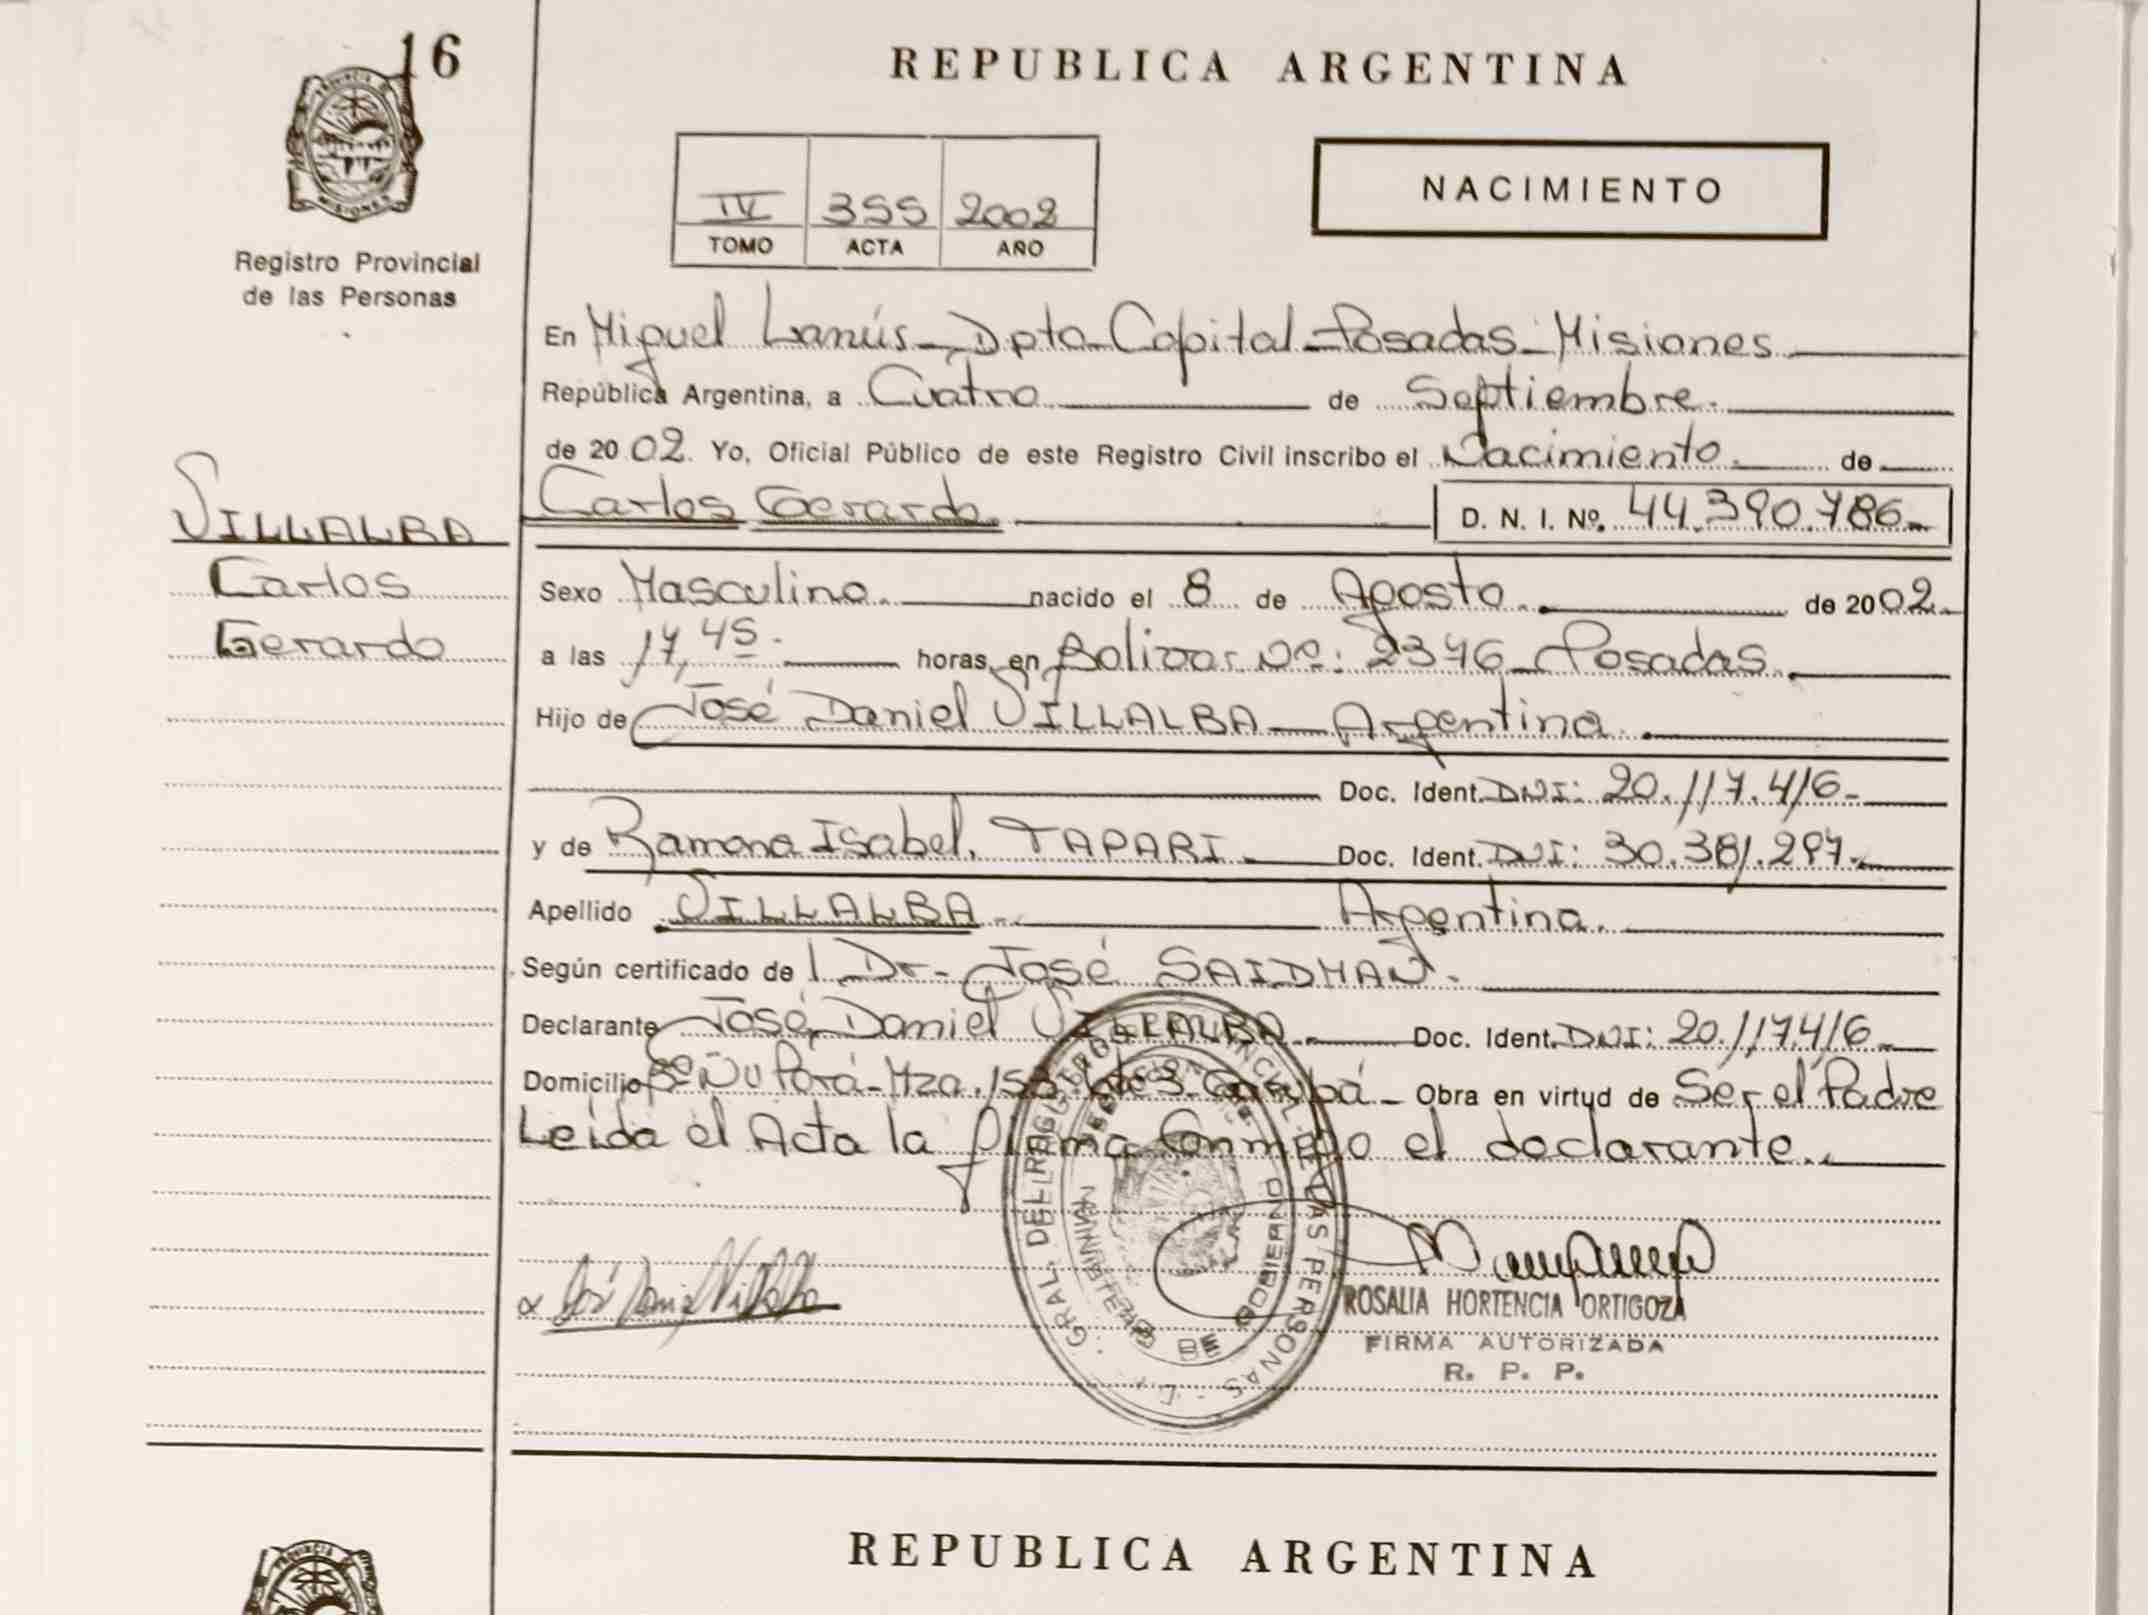 16
REPUBLICA ARGENTINA
PROVINCIA DE
MISIONES
Registro Provincial
de las Personas
IV 355 2002
TOMO ACTA AÑO
NACIMIENTO
En Miguel Lanús - Dpto Capital - Posadas - Misiones
República Argentina, a Cuatro de Septiembre.
de 2002. Yo, Oficial Público de este Registro Civil inscribo el Nacimiento. de
VILLALBA
Carlos
Gerardo
Carlos Gerardo. D. N. I. Nº. 44.390.786.-
Sexo Masculino. nacido el 8 de Agosto de 2002.-
a las 17,45.- horas, en Bolivar Nº: 2376 - Posadas.
Hijo de José Daniel VILLALBA - Argentina.
Doc. Ident. DNI: 20.117.416.-
y de Ramona Isabel. TAPARI Doc. Ident. DNI: 30.381.297.-
Apellido VILLALBA.- Argentina.
Según certificado de l Dr.- José SAIDMAN.
Declarante José Daniel VILLALBA.- Doc. Ident. DNI: 20.117.416.-
Domicilio Bº Ñu Porá - Mza. 153 Garupá - Obra en virtud de Ser el Padre
Leída el Acta la firma Conmigo el declarante.
José Daniel Villalba
ROSALIA HORTENCIA ORTIGOZA
FIRMA AUTORIZADA
R. P. P.
GRAL. DEL REGISTRO PROVINCIAL DE LAS PERSONAS
MINISTERIO DE GOBIERNO
REPUBLICA ARGENTINA
PROVINCIA DE